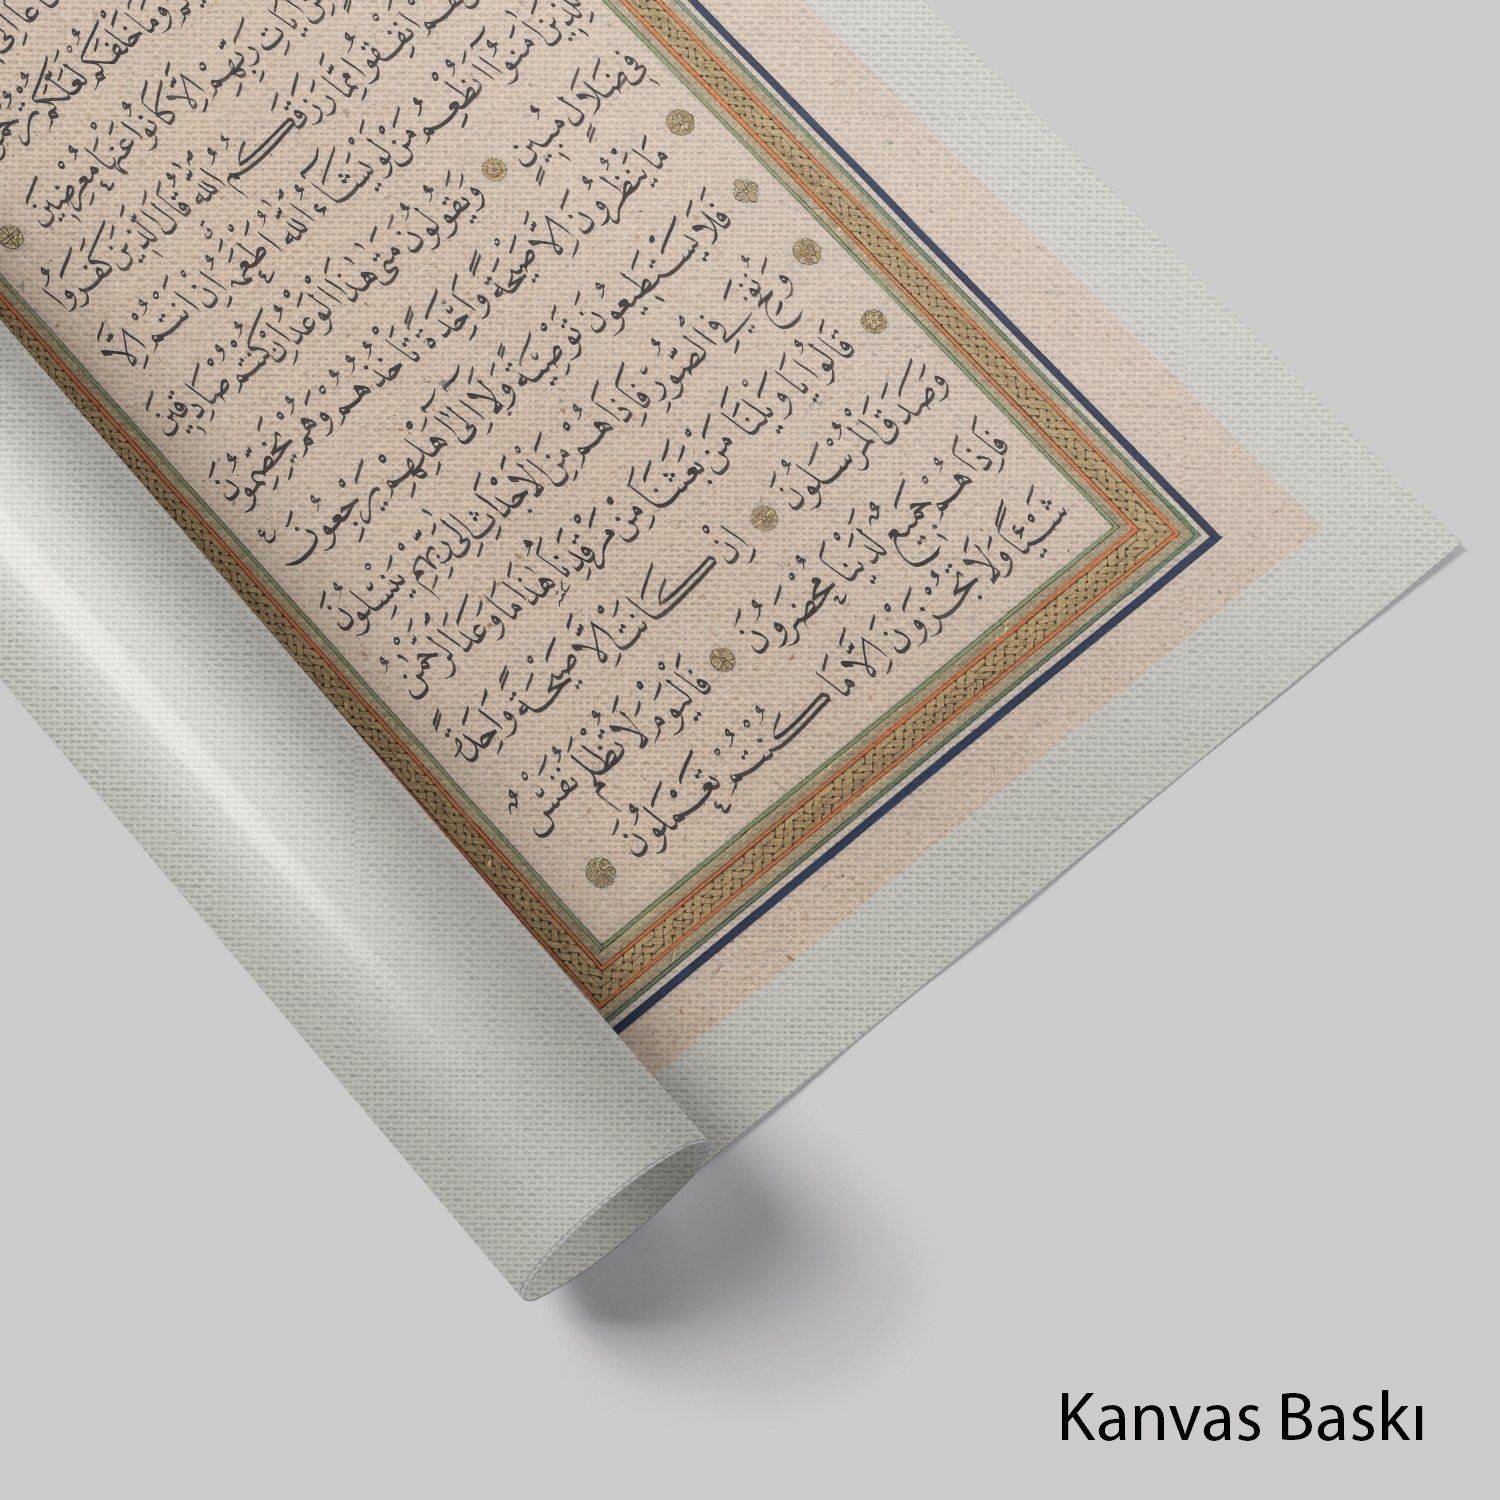 وَمَا خَلْفَكُمْ لَعَلَّكُمْ تُرْحَمُونَ
اٰيَاتِ رَبِّهِمْ اِلَّا كَانُوا عَنْهَا مُعْرِضِينَ
اَنْفِقُوا مِمَّا رَزَقَكُمُ اللّٰهُ قَالَ الَّذِينَ كَفَرُوا
لِلَّذِينَ اٰمَنُوا اَنُطْعِمُ مَنْ لَوْ يَشَاءُ اللّٰهُ اَطْعَمَهُ اِنْ اَنْتُمْ اِلَّا
فِى ضَلَالٍ مُبِينٍ وَيَقُولُونَ مَتٰى هٰذَا الْوَعْدُ اِنْ كُنْتُمْ صَادِقِينَ
مَا يَنْظُرُونَ اِلَّا صَيْحَةً وَاحِدَةً تَأْخُذُهُمْ وَهُمْ يَخِصِّمُونَ
فَلَا يَسْتَطِيعُونَ تَوْصِيَةً وَلَا اِلٰى اَهْلِهِمْ يَرْجِعُونَ
وَنُفِخَ فِى الصُّورِ فَاِذَا هُمْ مِنَ الْاَجْدَاثِ اِلٰى رَبِّهِمْ يَنْسِلُونَ
قَالُوا يَا وَيْلَنَا مَنْ بَعَثَنَا مِنْ مَرْقَدِنَا هٰذَا مَا وَعَدَ الرَّحْمٰنُ
وَصَدَقَ الْمُرْسَلُونَ اِنْ كَانَتْ اِلَّا صَيْحَةً وَاحِدَةً
فَاِذَا هُمْ جَمِيعٌ لَدَيْنَا مُحْضَرُونَ فَالْيَوْمَ لَا تُظْلَمُ نَفْسٌ
شَيْئًا وَلَا تُجْزَوْنَ اِلَّا مَا كُنْتُمْ تَعْمَلُونَ
Kanvas Baskı